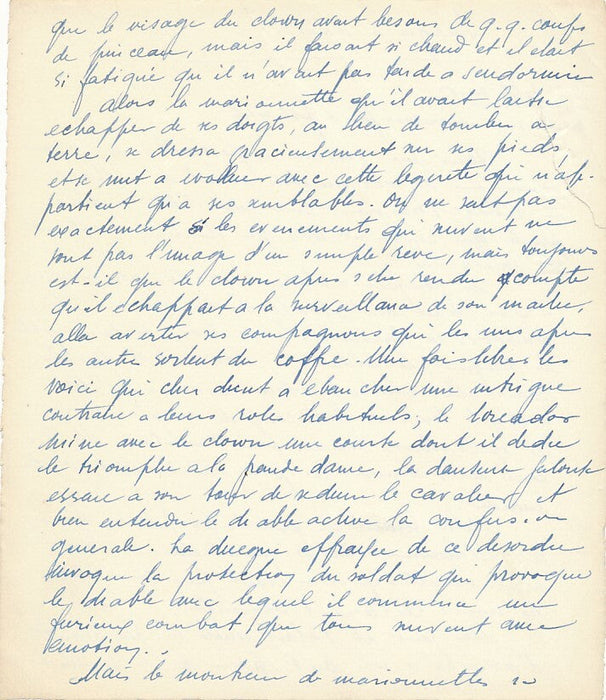 que le visage du clown avait besoin de q.q. coups
de pinceau, mais il faisait si chaud et il était
si fatigué qu'il n'avait pas tardé a s'endormir
Alors la marionnette qu'il avait laissé
echapper de ses doigts, au lieu de tomber a
terre, se dressa gracieusement sur ses pieds
et se mit a evoluer avec cette legereté qui n'ap-
partient qu'a ses semblables. On ne sait pas
exactement si les evenements qui suivent ne
sont pas l'image d'un simple reve, mais toujours
est-il que le clown apres s'etre rendu compte
qu'il echappait a la surveillance de son maitre,
alla avertir ses compagnons qui les uns apres
les autres sortent du coffre. Une fois libres les
voici qui cherchent a ebaucher une intrigue
contraire a leurs roles habituels; le toreador
mime avec le clown une course dont il dedie
le triomphe a la grande dame, la danseuse jalouse
essaie a son tour de seduire le cavalier et
bien entendu le diable active la confusion
generale. La duegne effrayée de ce desordre
invoque la protection du soldat qui provoque
le diable avec lequel il commence un
furieux combat que tous suivent avec
emotion.
Mais le montreur de marionnettes